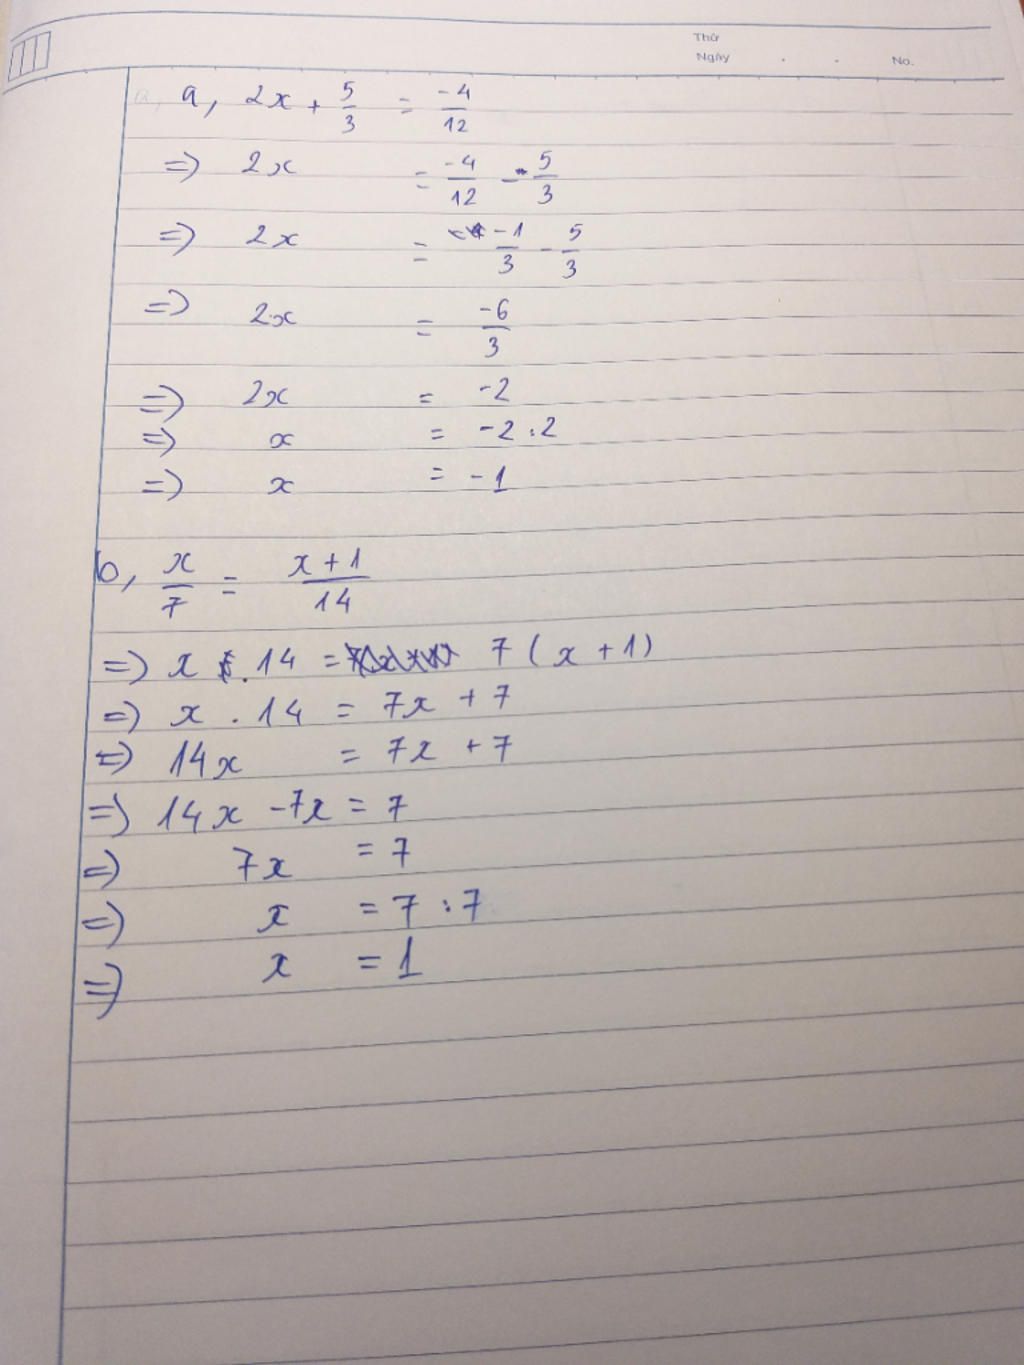 Thứ
Ngày . . No.
a, 2x + 5/3 = -4/12
=> 2x = -4/12 - 5/3
=> 2x = -1/3 - 5/3
=> 2x = -6/3
=> 2x = -2
=> x = -2 : 2
=> x = -1
b, x/7 = x+1/14
=> x . 14 = 7 ( x + 1 )
=> x . 14 = 7x + 7
=> 14x = 7x + 7
=> 14x - 7x = 7
=> 7x = 7
=> x = 7 : 7
=> x = 1